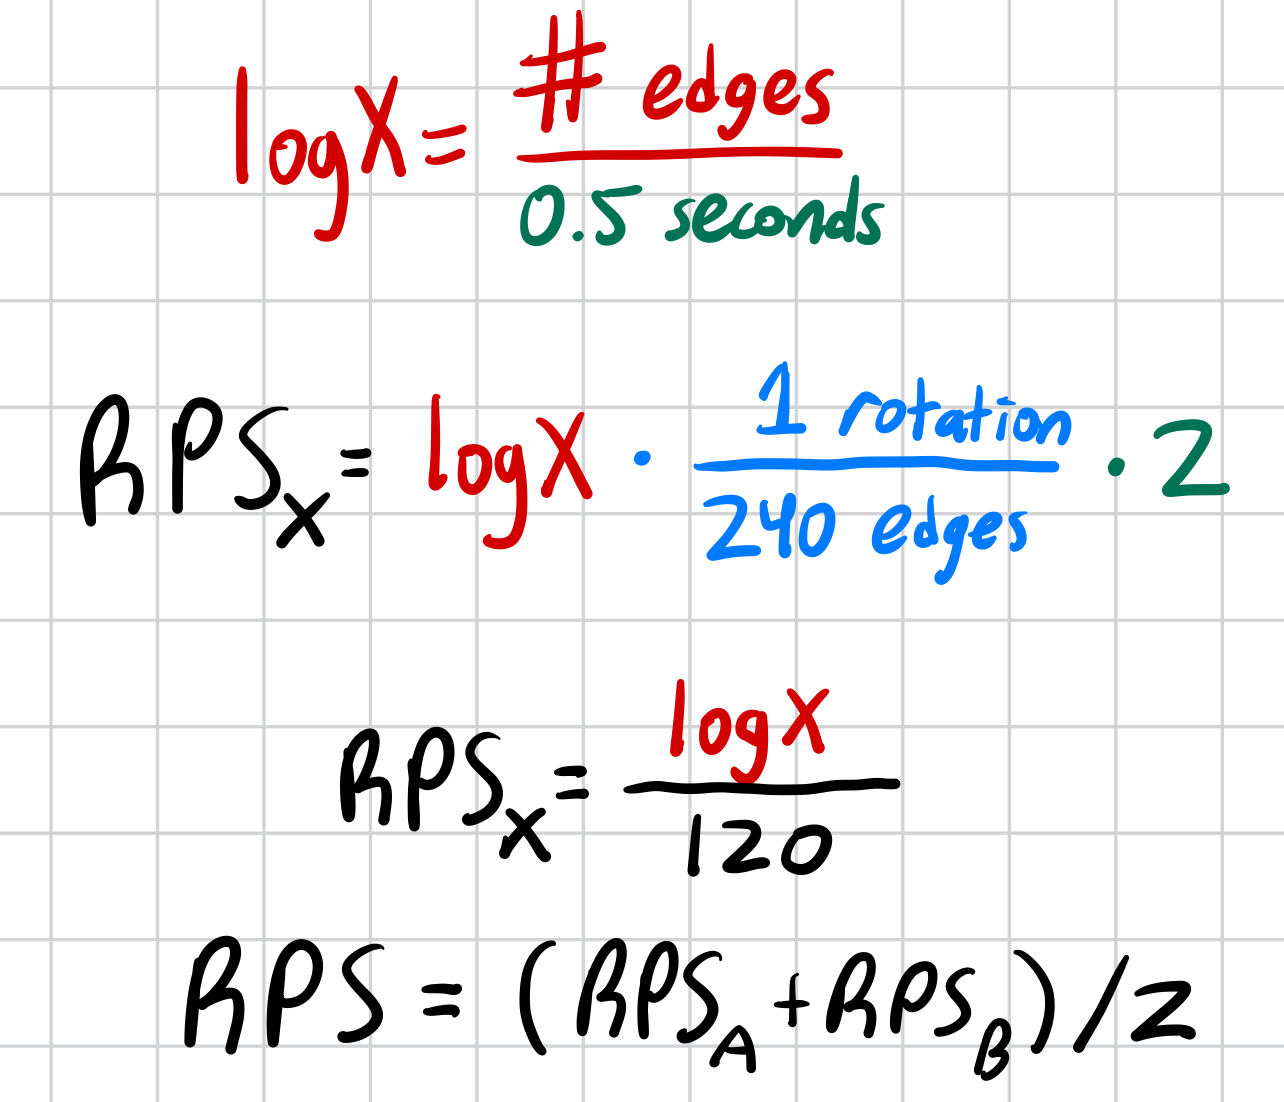 logX = # edges / 0.5 seconds
RPS_X = logX · 1 rotation / 240 edges · 2
RPS_X = logX / 120
RPS = (RPS_A + RPS_B)/2